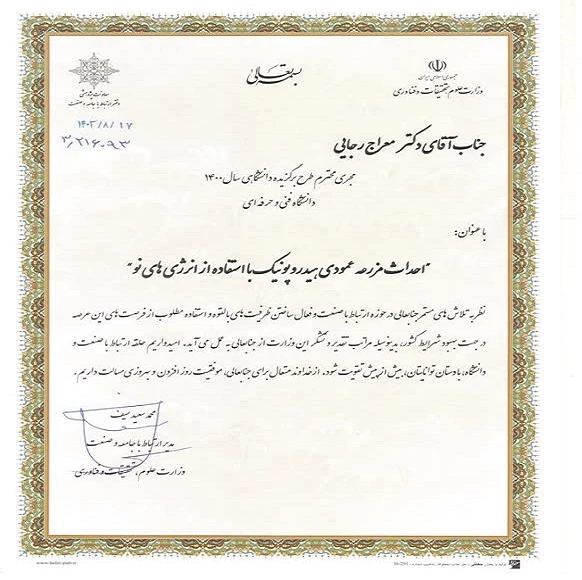 بسمه تعالی
جمهوری اسلامی ایران
وزارت علوم، تحقیقات و فناوری
معاونت پژوهشی
دفتر ارتباط با جامعه و صنعت
۱۴۰۲/۸/۱۷
۳/۲۱۶۰۹۳
جناب آقای دکتر معراج رجایی
مجری محترم طرح برگزیده دانشگاهی سال ۱۴۰۰
دانشگاه فنی و حرفه ای
با عنوان:
"احداث مزرعه عمودی هیدروپونیک با استفاده از انرژی های نو"
نظر به تلاش های مستمر جنابعالی در حوزه ارتباط با صنعت و فعال ساختن ظرفیت های بالقوه و استفاده مطلوب از فرصت های این عرصه
در جهت بهبود شرایط کشور، بدینوسیله مراتب تقدیر و تشکر این وزارت از جنابعالی به عمل می آید. امیدواریم حلقه ارتباط با صنعت و
دانشگاه، با دستان توانایتان، بیش از پیش تقویت شود. از خداوند متعال برای جنابعالی، موفقیت روز افزون و بهروزی مسالت داریم.
محمد سعید سیف
مدیر ارتباط با جامعه و صنعت
وزارت علوم، تحقیقات و فناوری